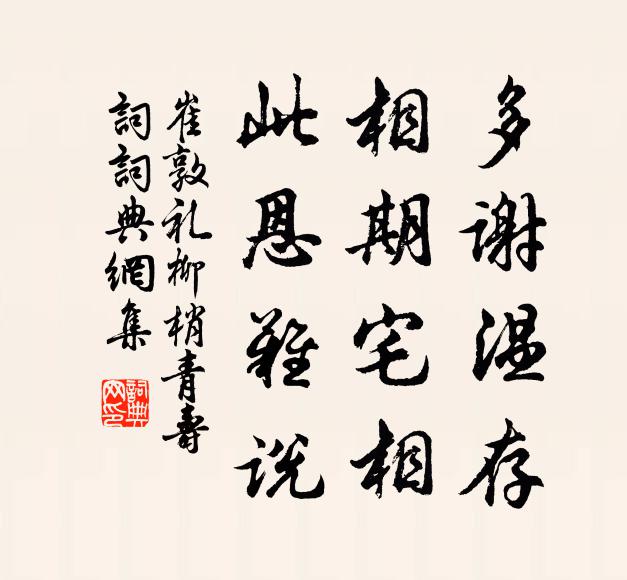 多谢温存
相期宅相
此恩难说
崔敦礼柳梢青寿
詞詞典網集
詞典網印